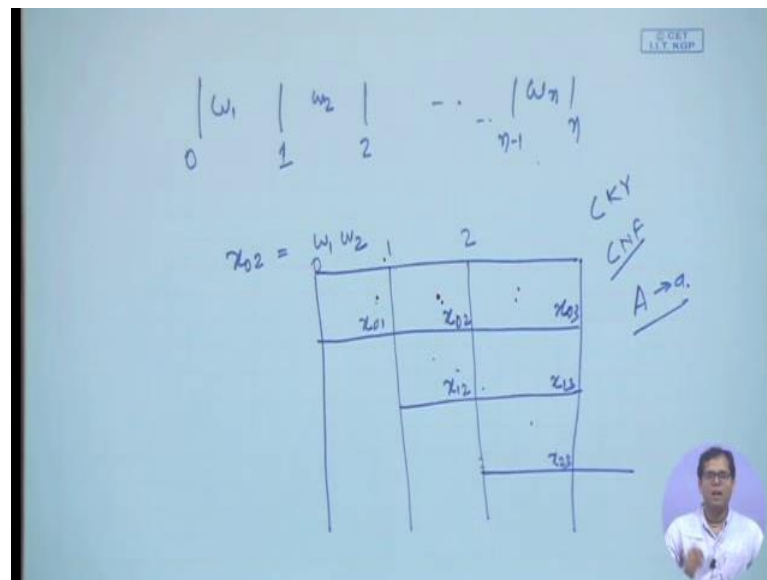 © CET
I.I.T. KGP
| w₁ | w₂ | - . . . | wₙ |
0 1 2 n-1 n
CKY
CNF
A → a.
x₀₂ = w₁ w₂
0 1 2
x₀₁ x₀₂ x₀₃
x₁₂ x₁₃
x₂₃